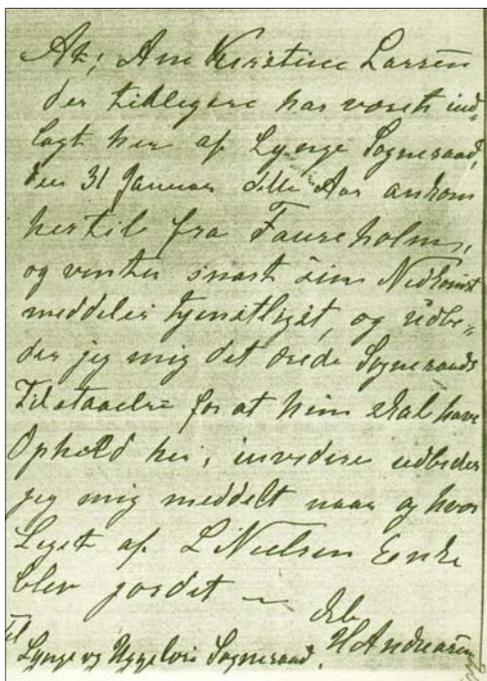 At; Ane Kirstine Larsen
der tidligere har været ind-
lagt her af Lynge Sogneraad,
den 31 Januar dette Aar ankom
hertil fra Faureholm,
og venter snart sin Nedkomst
meddeles tjenstligst, og udbe-
der jeg mig det ærede Sogneraads
Tilstaaelse for at hun skal have
Ophold her, invidere udbeder
jeg mig meddelt naar og hvor
Liget af L Nielsen Enke
blev jordet —
Erb
H Andreasen
Til
Lynge og Uggeløse Sogneraad.